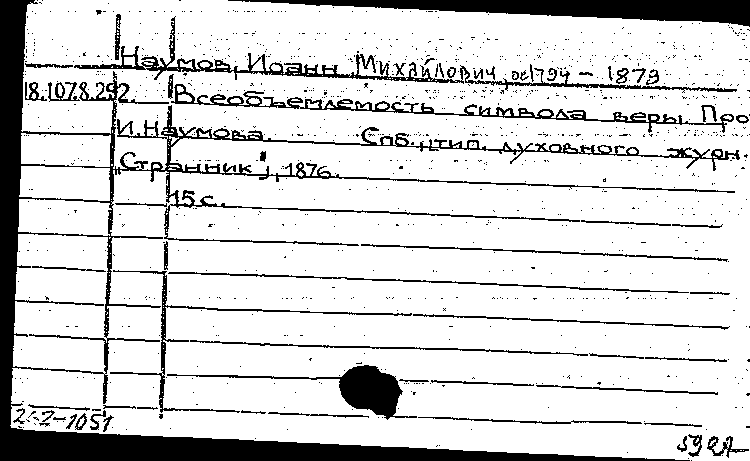 Наумов, Иоанн Михайлович, 1794 – 1879
18.107.8.292. Всеобъемлемость символа веры. Про
И. Наумова. Спб., тип. духовного журн.
"Странник", 1876.
15 с.
-1051